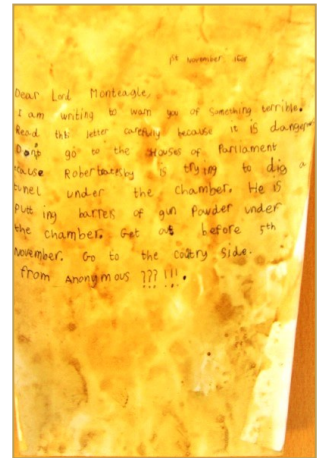 1st November, 1605
Dear Lord Monteagle,
I am writing to warn you of something terrible.
Read this letter carefully because it is danger
Don't go to the Houses of Parliament
cause Robert catsby is trying to dig a
tunel under the chamber. He is
putt ing barrels of gun Powder under
the chamber. Get out before 5th
November. Go to the coutry side.
from Anonymous ??? !!!.